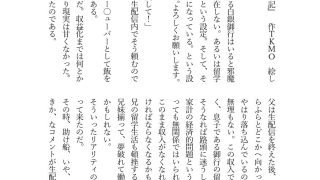 記」　作TKMO　絵し
る白銀御行はいると邪魔
在しない。あるいは留学
という設定。そして、そ
になっている。という設
『よろしくお願いします。
して！」
生配信内でそう頼むので
ー〇ューバーとして飯を
ある。
だ。収益化までは何とか
り現実は甘くなかった。
たのである。
父は生配信を終えた後、
らふらとどこかへ向かっ
やはり落ち込んでいるの
無理もない。この収入で
く、息子である御行の留
そうなれば路頭に迷うし
家計の経済的問題という
っても無関係ではいられ
このまま収入がなくなれ
ければならなくなるかも
兄の留学生活も頓挫する
兄妹揃って、夢破れて働
かもしれない。
そういったリアリティの
って来たのだ。
その時、助け船、いや、
きか、なコメントが生配